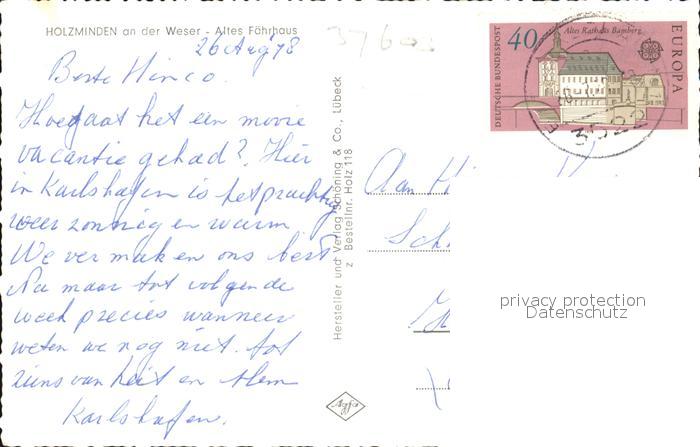 HOLZMINDEN an der Weser - Altes Fährhaus
26 Aug 78
Beste Hinco.
Hoe gaat het een mooie
vacantie gehad? Hier
in Karlshafen is het prachtig
weer zonnig en warm
We vermaken ons best
Nu maar tot volgende
week precies wanneer
weten we nog niet. tot
ziens van en
Karlshafen.
Hersteller und Verlag Schöning & Co., Lübeck
z Bestellnr. Holz 118
Agfa
DEUTSCHE BUNDESPOST
40
Altes Rathaus Bamberg
EUROPA
CEPT
3522
Aan
privacy protection
Datenschutz